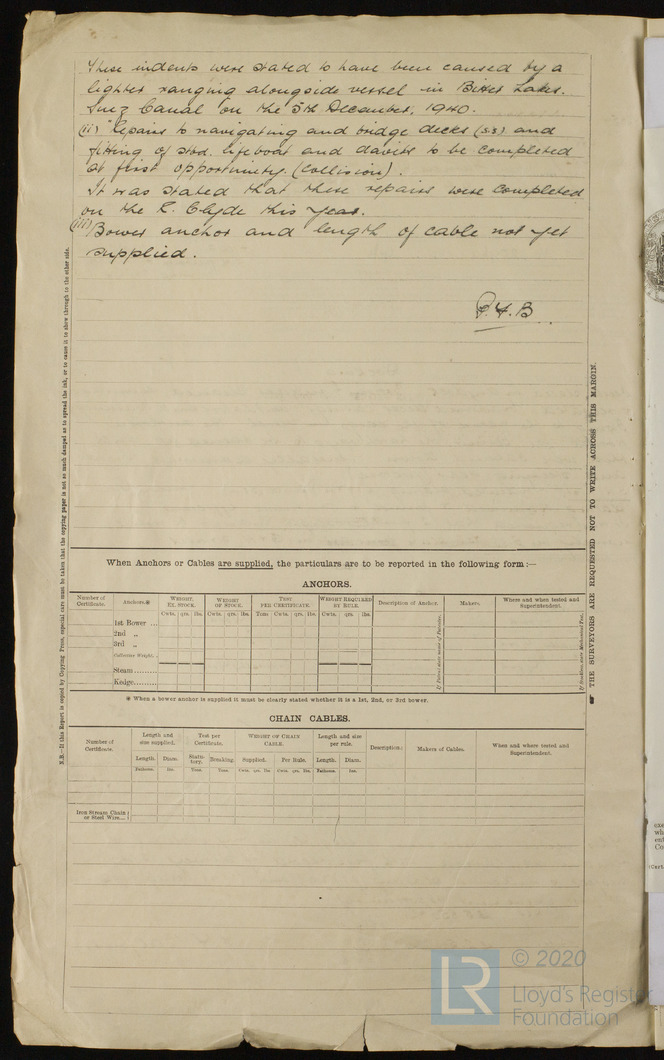 These indents were stated to have been caused by a
lighter ranging alongside vessel in Bitter Lakes.
Suez Canal on the 5th December, 1940.
(ii) "Repairs to navigating and bridge decks (s.s) and
fitting of stbd. lifeboat and davits to be completed
at first opportunity. (Collision).
It was stated that these repairs were completed
on the R. Clyde this year.
(iii) Bower anchor and length of cable not yet
supplied.
When Anchors or Cables are supplied, the particulars are to be reported in the following form :—
ANCHORS.
Number of Certificate. Anchors.* WEIGHT, EX. STOCK. WEIGHT OF STOCK. TEST PER CERTIFICATE WEIGHT REQUIRED BY RULE. Description of Anchor. Makers. Where and when tested and Superintendent.
Cwts. qrs. lbs. Cwts. qrs. lbs. Tons Cwts. qrs. lbs. Cwts. qrs. lbs.
1st Bower ...
2nd „
3rd „
Collective Weight.
Stream
Kedge
* When a bower anchor is supplied it must be clearly stated whether it is a 1st, 2nd, or 3rd bower.
CHAIN CABLES.
Number of Certificate. Length and size supplied. Test per Certificate. WEIGHT OF CHAIN CABLE. Length and size per rule. Description. Makers of Cables. When and where tested and Superintendent.
Length. Diam. Statutory. Breaking. Supplied. Per Rule. Length. Diam.
Fathoms. Ins. Tons. Tons. Cwts. qrs. lbs. Cwts. qrs. lbs. Fathoms. Ins.
Iron Stream Chain
or Steel Wire
N.B.—If this Report is copied by Copying Press, especial care must be taken that the copying paper is not so much damped as to spread the ink, or to cause it to show through to the other side.
THE SURVEYORS ARE REQUESTED NOT TO WRITE ACROSS THIS MARGIN.
LR
© 2020
Lloyd's Register
Foundation